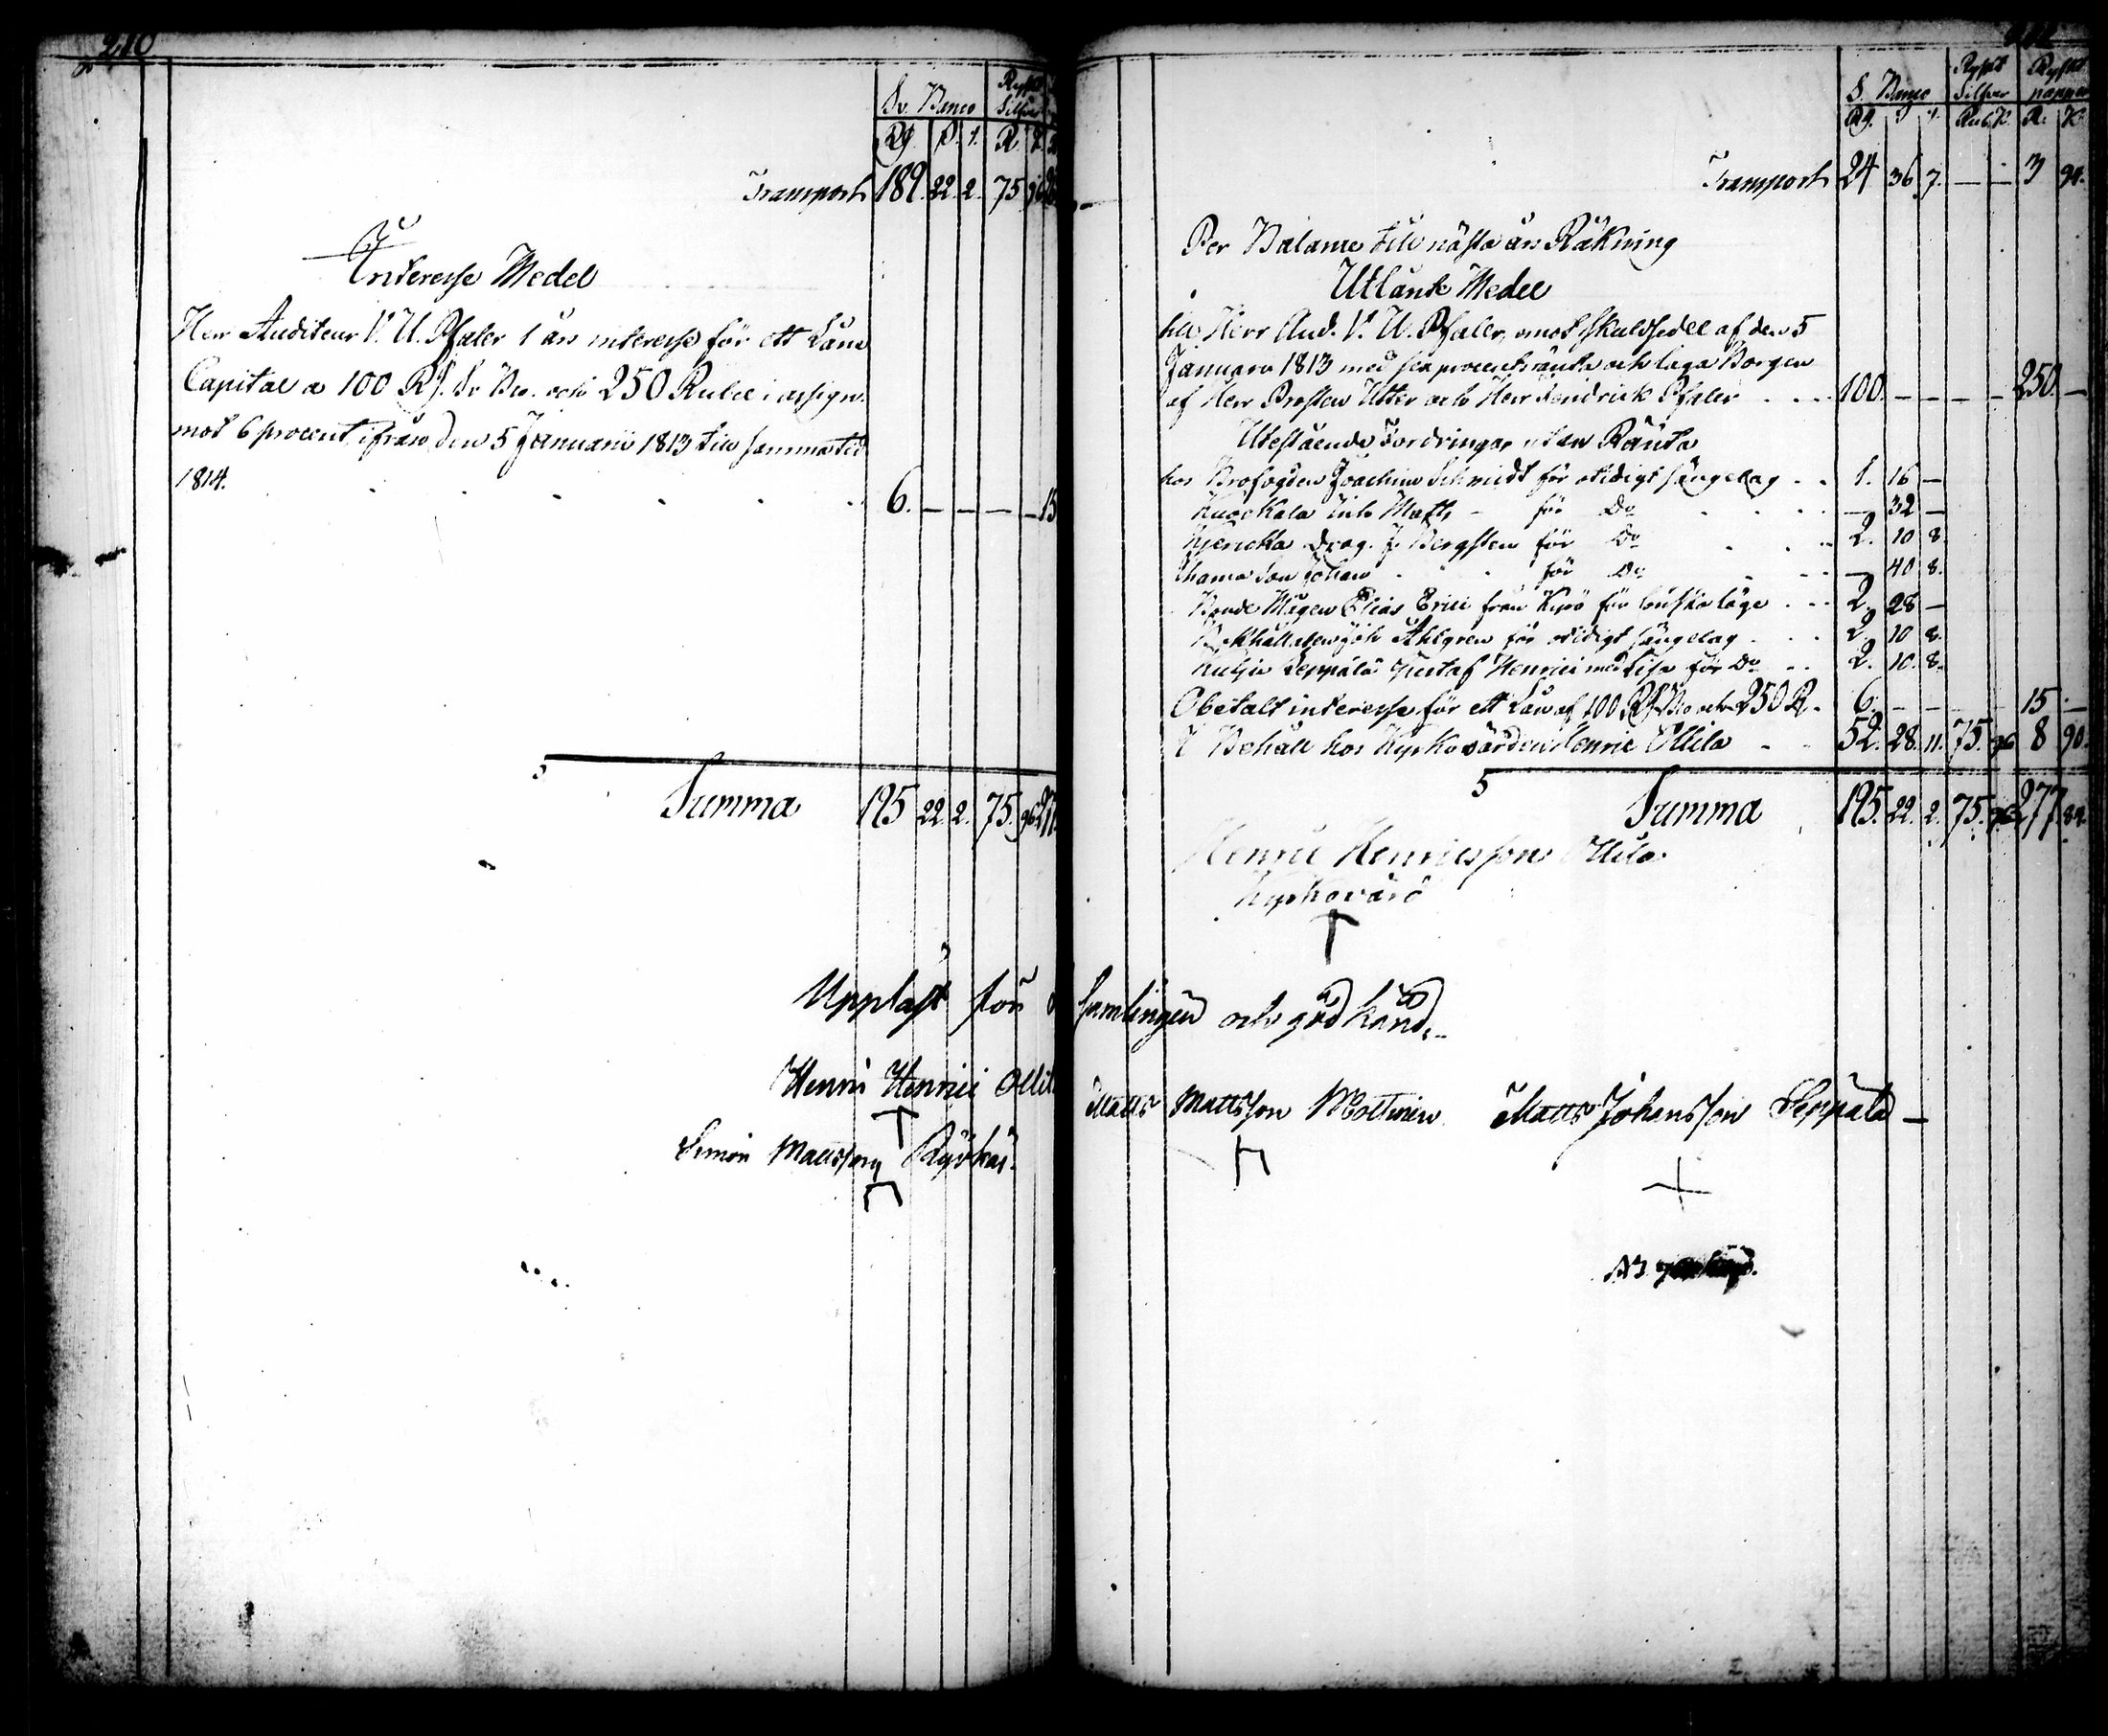 210
Sv. Banco Ryskt Silfver
Rd. S. r. R.
Transport 189. 22. 2. 75. 96
Interesse Medel
Herr Auditeur V. U. Pfaler 1 års interesse för ett Låne
Capital a 100 Rd. Sv Bco. och 250 Rubel i assign.
mot 6 procent, ifrån den 5 Januarii 1813 till samma tid
1814. 6. — — — — 15
Summa 195 22. 2. 75. 96 277
Uppläst för
Henric Henrici Ollila
Simon Mattsson
S. Banco Ryskt Silfver Ryskt papper
Rd. S. r. Rub. K. R. K.
Transport 24 36 7. — — 3 94.
Per Balance till nästa års Räkning
Utlänte Medel
till Herr Aud. V. U. Pfaler, emot skuldsedel af den 5
Januarii 1813 med sex procents ränta och laga Borgen
af Herr Prosten Utter och Herr Fendrick Pfaler 100. — — — — 250. —
Utestående Fordringar utan Ränta
hos Brofogden Joachim Schmidt för otidigt sängelag 1. 16 —
Inh. Matts för Do — 32 —
Drag. J. Bergsten för Do 2. 10 8.
Son Johan för Do — 40 8.
Bonde Mågen Elias Erici från Kyrö för 2. 28 —
Joh Ahlgren för otidigt sängelag 2. 10 8.
Seppälä Gustaf Henrici med Lisa för Do 2. 10. 8.
Obetalt interesse för ett Lån af 100 Rd. Bco och 250 R. 6. — — — — 15 —
I Behåll hos Kyrkovärden Henric Ollila 52. 28. 11. 75. 96 8 90.
Summa 195. 22. 2. 75. 96 277 84.
Henric Henricsson Ollila
Kyrkovärd
samlingen och god känd.
Matts Mattsson Matts Johansson Seppälä